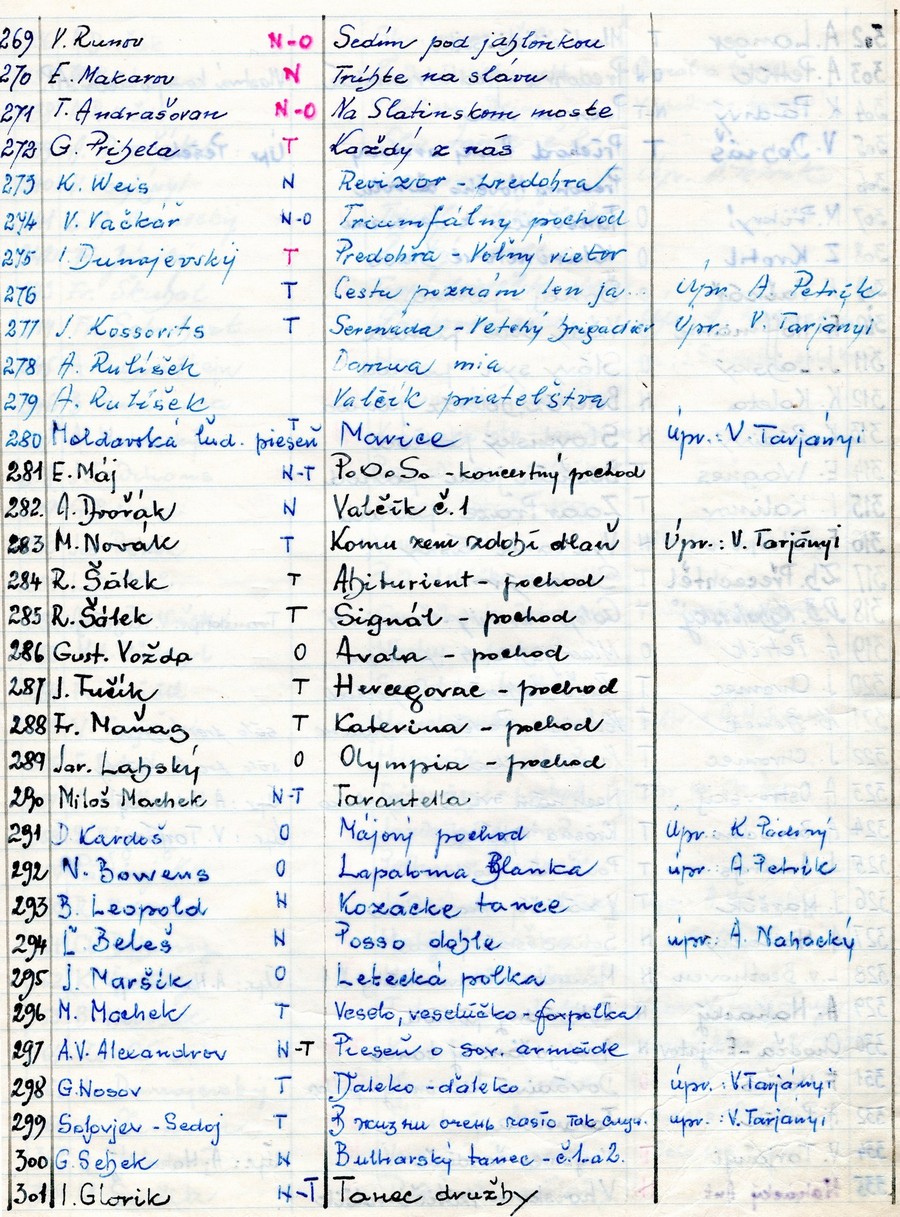 269 V. Runov N-O Sedím pod jabloňkou
270 E. Makarov N Trúbte na slávu
271 T. Andrašovan N-O Na Slatinskom moste
272 G. Pribela T Každý z nás
273 K. Weis N Revizor - predohra
274 V. Vačkář N-O Triumfálny pochod
275 I. Dunajevský T Predohra - Voľný vietor
276 T Cestu poznám len ja... Úpr. A. Petrík
277 J. Kossovits T Serenáda - Veterý brigadier Úpr. V. Tarjányi
278 A. Rulíšek Donna mia
279 A. Rulíšek Valčík priateľstva
280 Moldavská ľud. pieseň T Marice Úpr.: V. Tarjányi
281 E. Máj N-T P.O.S. - koncertný pochod
282. A. Dvořák N Valčík č. 1
283 M. Novák T Komu zem zdobí dlaň Úpr.: V. Tarjányi
284 R. Šálek T Abiturient - pochod
285 R. Šálek T Signál - pochod
286 Gust. Vožda O Avala - pochod
287 J. Fučík T Hercegovac - pochod
288 Fr. Maňas T Katerina - pochod
289 Jar. Labský O Olympia - pochod
290 Miloš Machek N-T Tarantella
291 D. Kardoš O Májový pochod Úpr. K. Pádivý
292 N. Bowens O Lapaloma Blanka úpr. A. Petrík
293 B. Leopold N Kozácke tance
294 Ľ. Beleš N Posso doble úpr. A. Nahacký
295 J. Maršík O Letecká polka
296 M. Machek T Veselo, veselúčko - foxpolka
297 A.V. Alexandrov N-T Pieseň o sov. armáde
298 G. Nosov T Ďaleko - ďaleko úpr.: V. Tarjányi
299 Solovjev - Sedoj T В жизни очень часто так случ. úpr.: V. Tarjányi
300 G. Sebek N Bulharský tanec - č. 1. a 2.
301 I. Glorik N-T Tanec družby